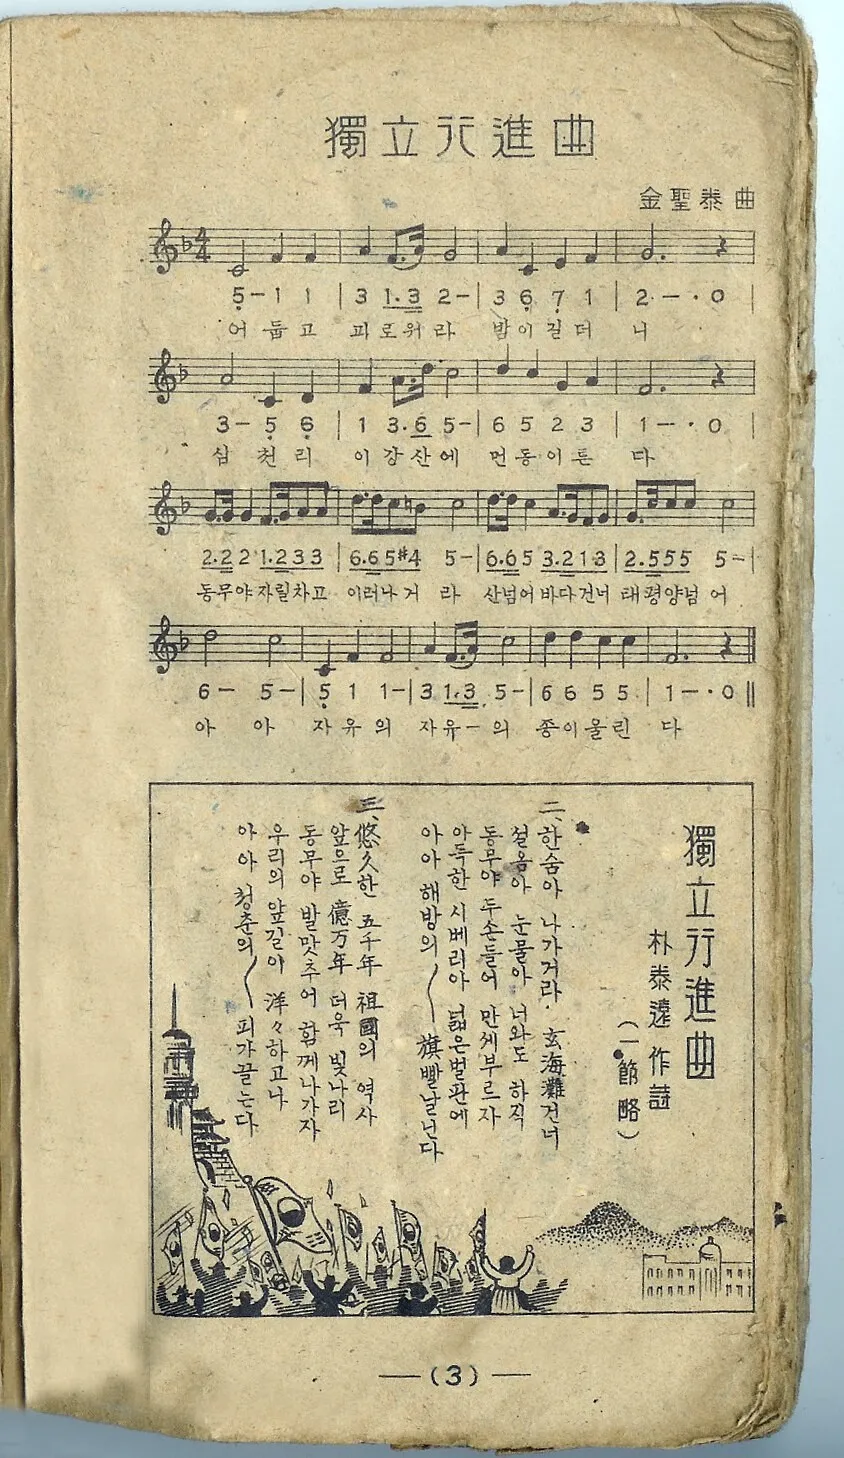 獨立行進曲
金聖泰 曲
5-1 1 | 3 1.3 2- | 3 6 7 1 | 2-·0 |
어 둡 고 괴 로 워 라 밤 이 길 더 니
3-5 6 | 1 3.6 5- | 6 5 2 3 | 1-·0 |
삼 천 리 이 강 산 에 먼 동 이 튼 다
2.2 2 1.2 3 3 | 6.6 5 #4 5- | 6.6 5 3.2 1 3 | 2.5 5 5 5- |
동무야 자릴차고 이러나 거 라 산넘어 바다건너 태평양넘 어
6- 5- | 5 1 1- | 3 1.3 5- | 6 6 5 5 | 1-·0 ‖
아 아 자 유 의 자 유 - 의 종 이 울 린 다
獨立行進曲
朴泰遠 作詩
(一節略)
二、한숨아 나가거라. 玄海灘건너
설음아 눈물아 너와도 하직
동무야 두손들어 만세부르자
아득한 시베리아 넓은벌판에
아아 해방의〱 旗빨날닌다
三、悠久한 五千年 祖國의 역사
앞으로 億万年 더욱 빛나리
동무야 발맞추어 함께나가자
우리의 앞길이 洋々하고나
아아 청춘의〱 피가끌는다
—(3)—